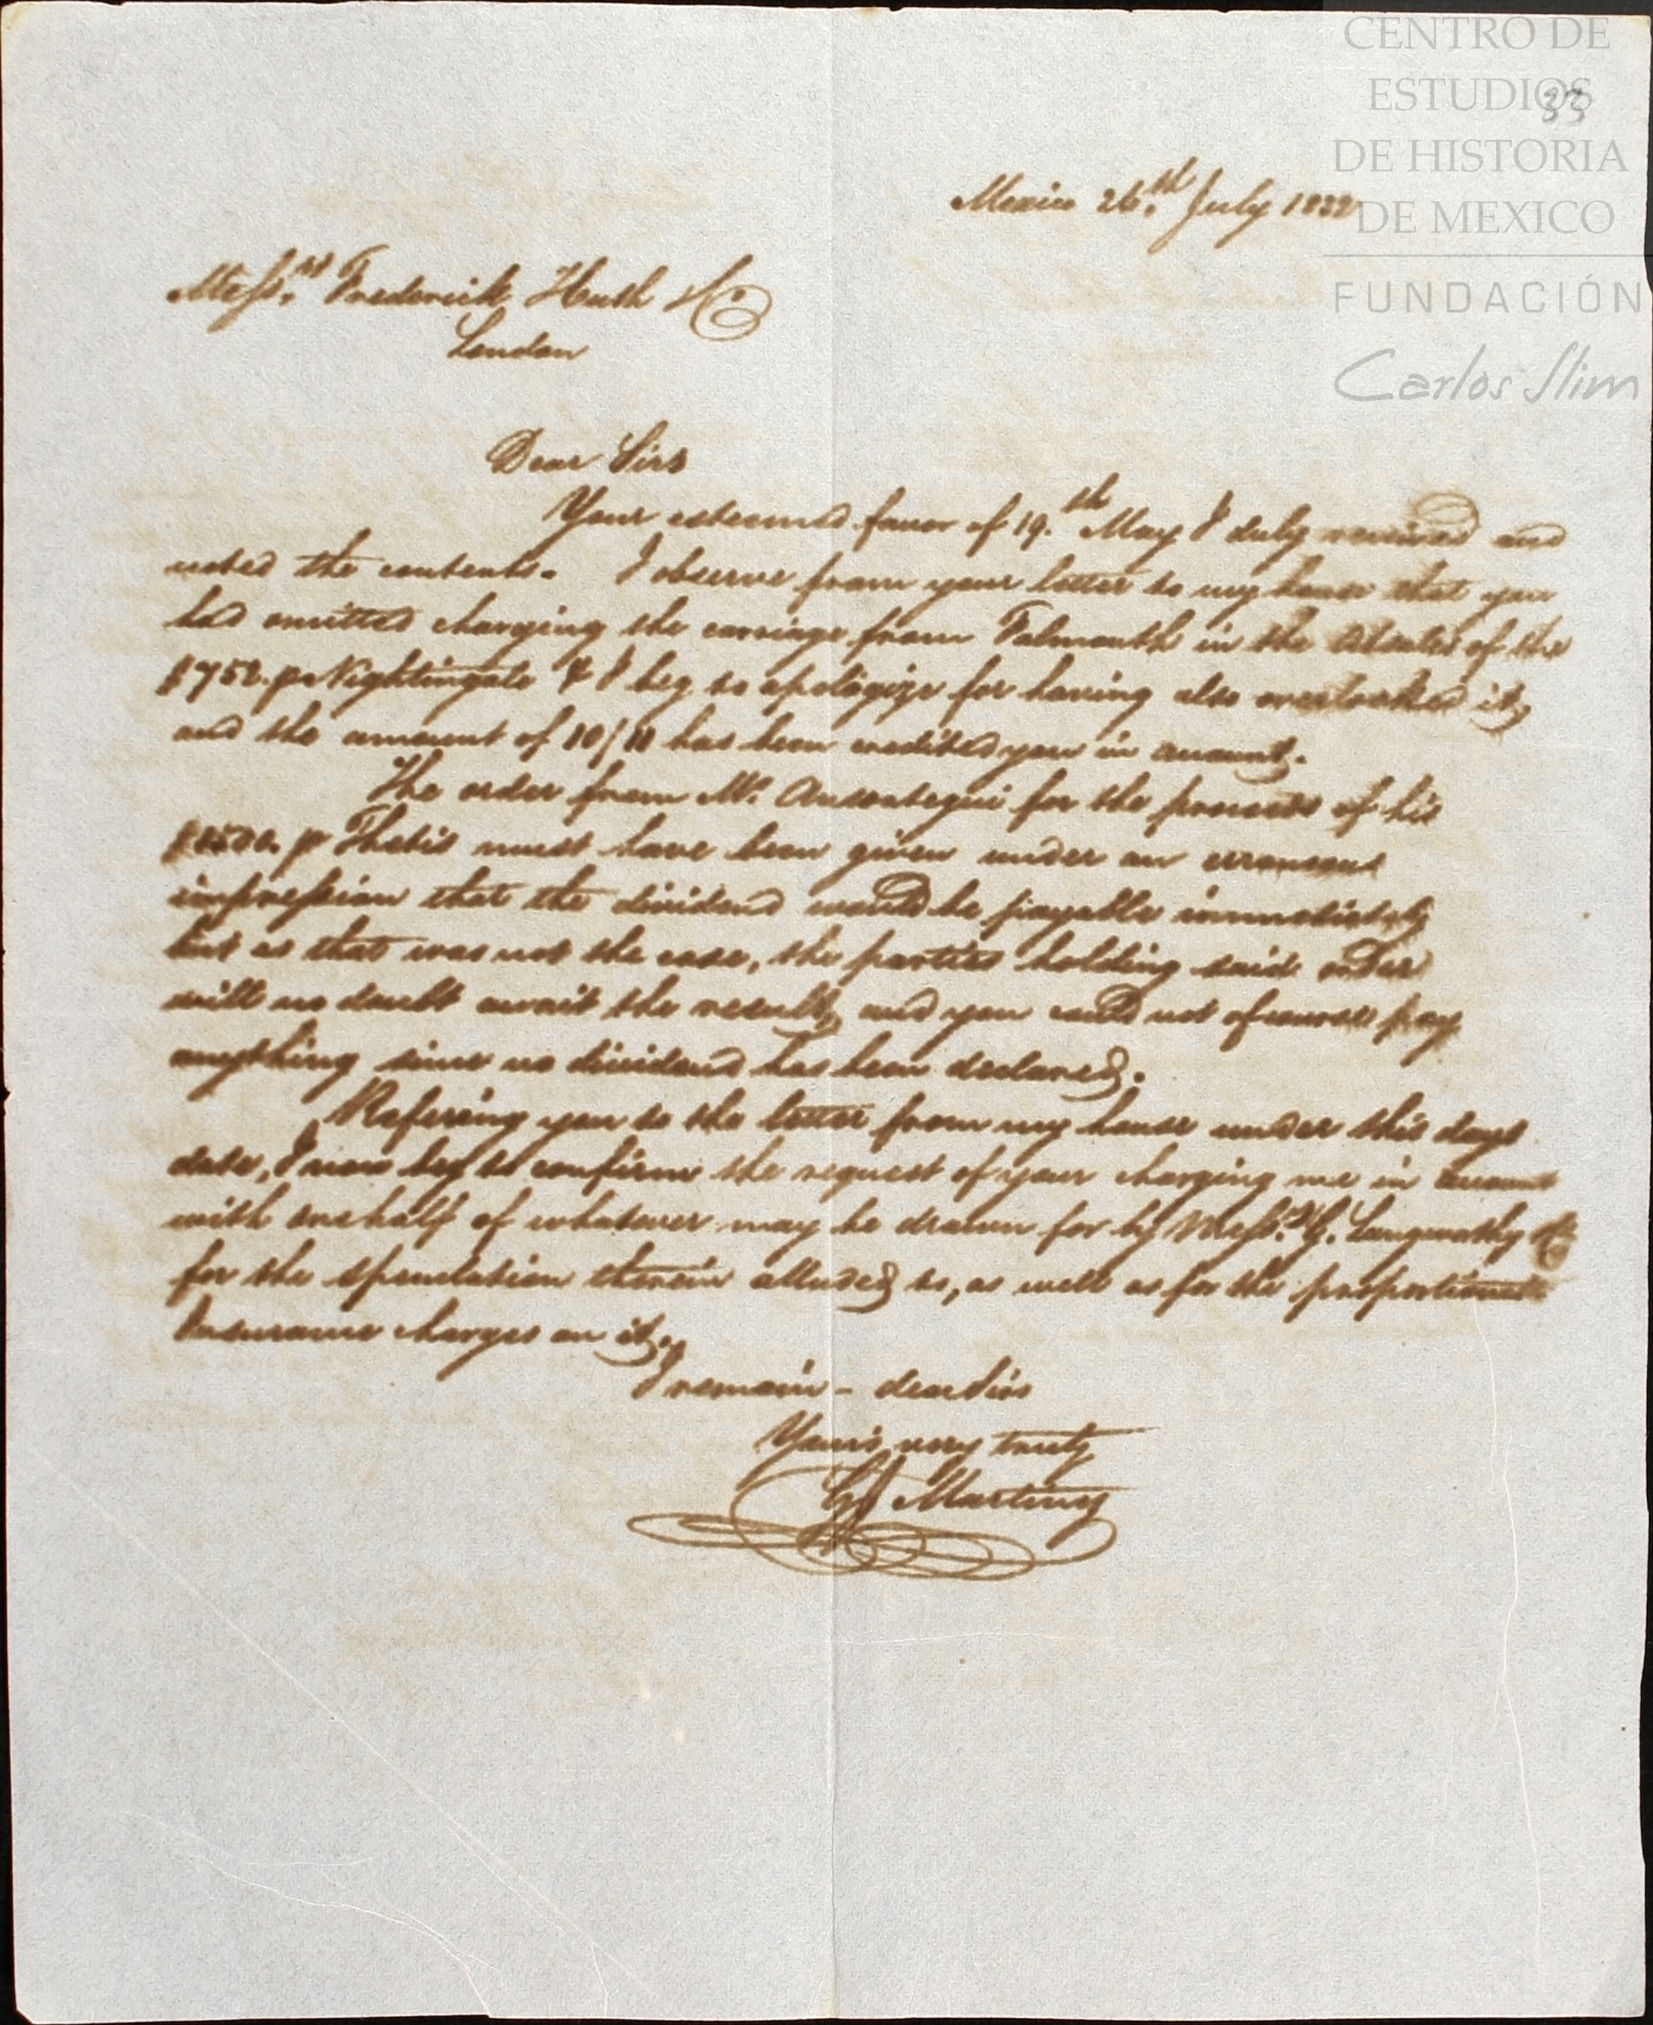 CENTRO DE
ESTUDIOS
DE HISTORIA
DE MEXICO
FUNDACIÓN
Carlos Slim
33
Mexico 26.th July 1832
Messrs Frederick Huth & Co
London
Dear Sirs
Your esteemed favor of 19.th May I duly received and
noted the contents. I observe from your letter to my house that you
had omitted charging the carriage from Falmouth in the of the
$752. p Nightingale & I beg to apologize for having also overlooked it,
and the amount of 10/11 has been credited you in account.
The order from Mr. Ansoategui for the proceeds of his
p Thetis must have been given under an erroneous
impression that the dividend would be payable immediately
but as that was not the case, the parties holding said order
will no doubt await the result, and you could not of course pay
anything since no dividend has been declared.
Refering you to the letter from my house under this days
date, I now beg to confirm the request of your charging me in account
with one half of whatever may be drawn for by Messrs G. Langworthy & Co
for the speculation therein alluded to, as well as for the proportionate
Insurance charges on it.
I remain - dear Sirs
Yours very truly
Martiny